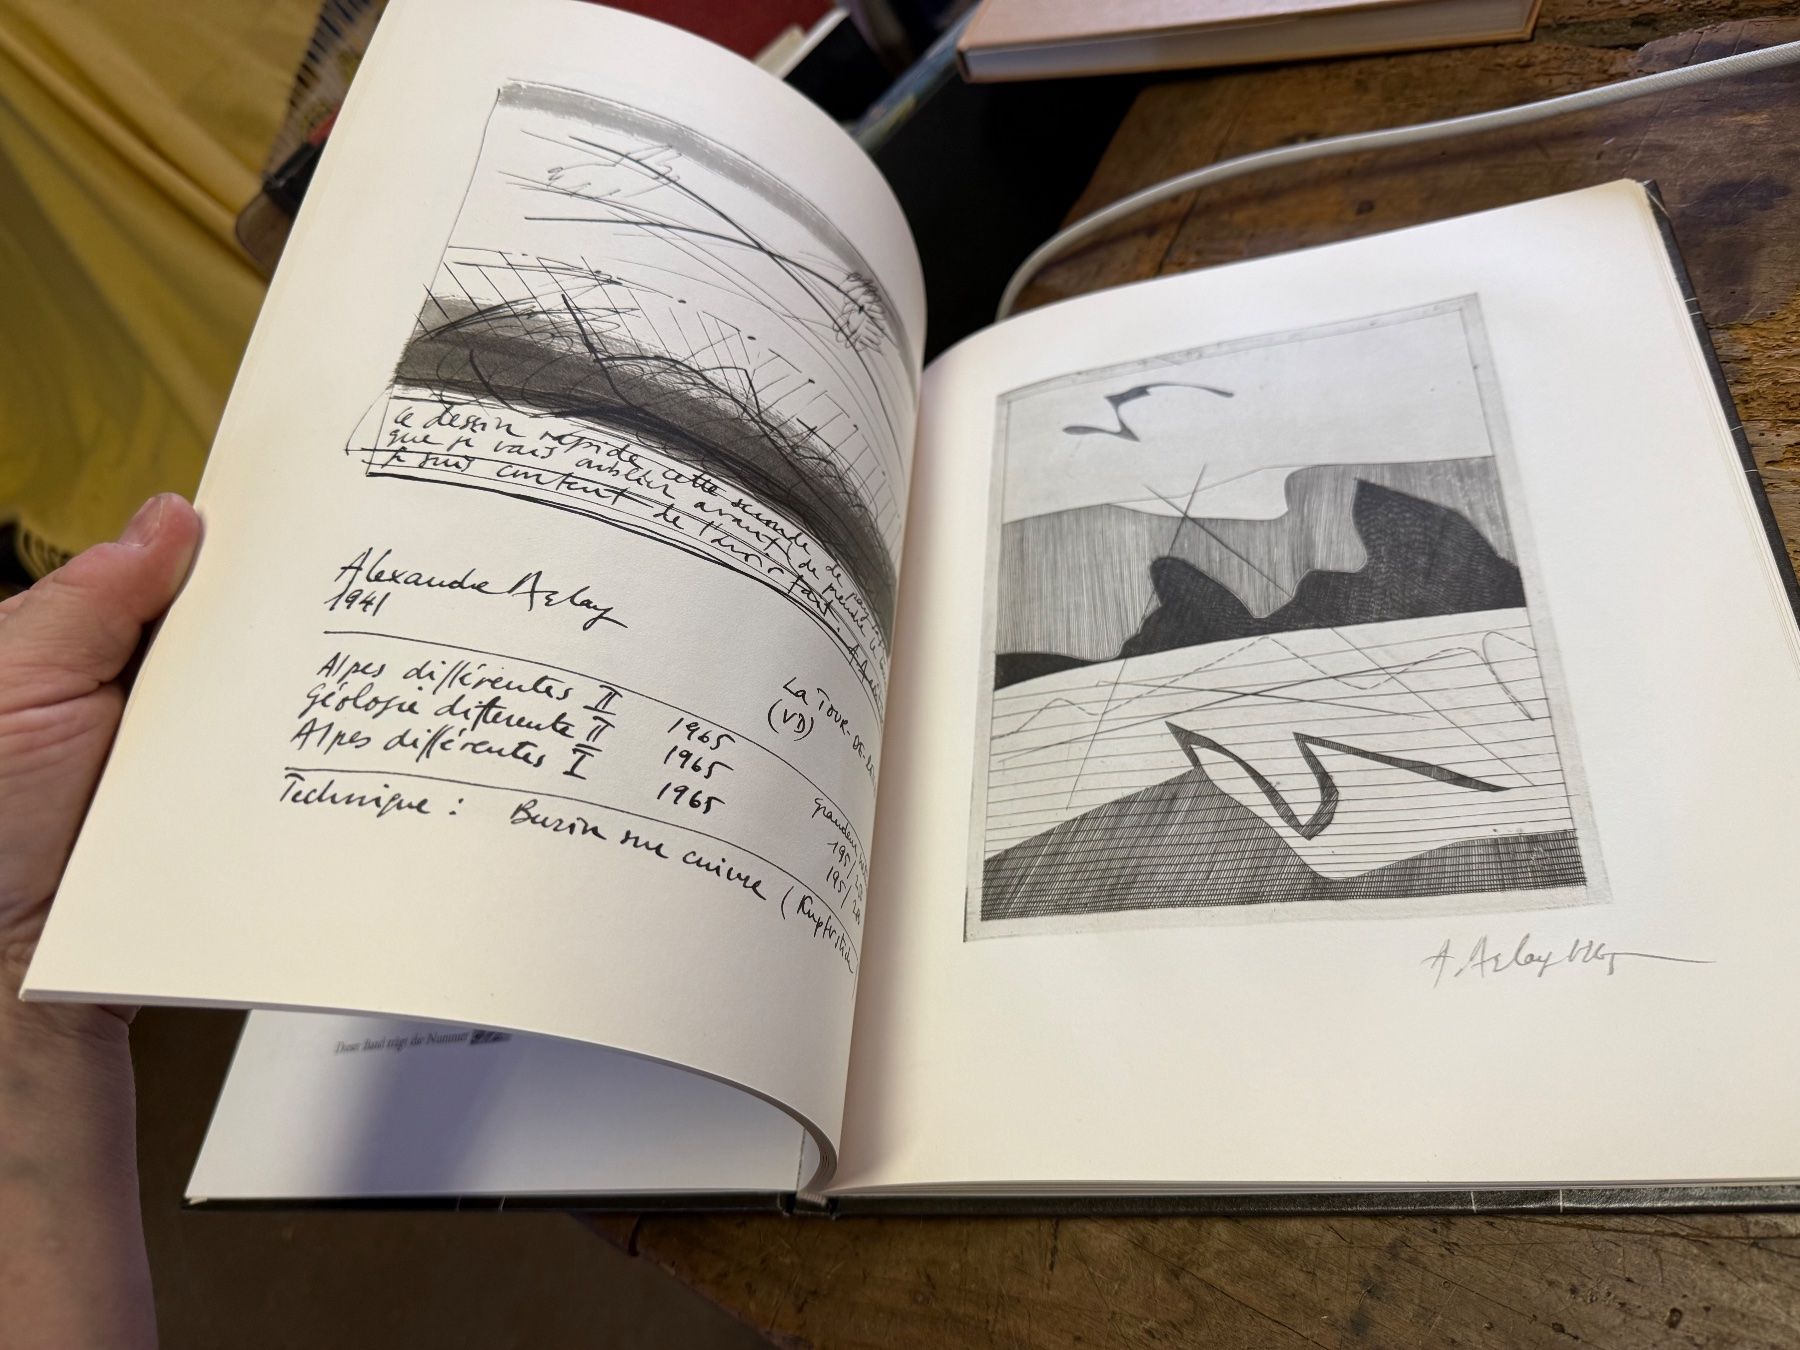 ce dessin rapide cette seconde de
que je vais oublier avant de prendre le
je suis content de l'avoir fait.
Alexandre Azlay
1941
La Tour-de-
(VD)
Alpes différentes II 1965
Géologie différente II 1965
Alpes différentes I 1965
grandeur
195/
195/
Technique : Burin sur cuivre (Kupferstich
Dieser Band trägt die Nummer
A. Azlay